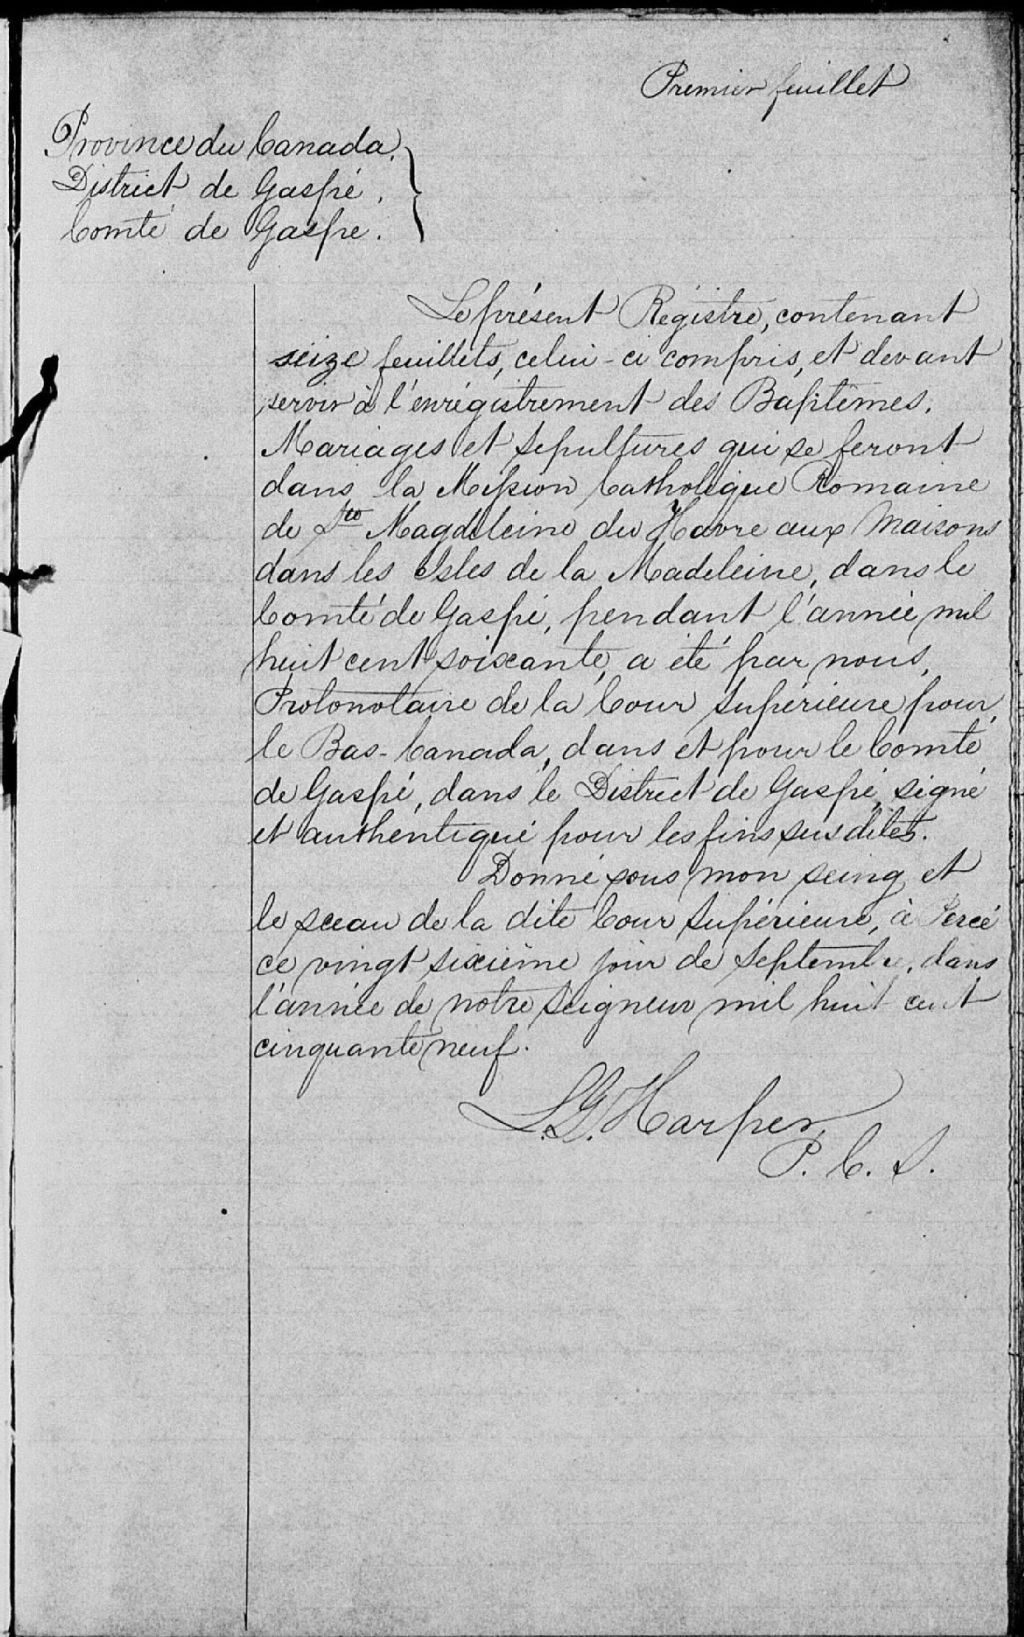 Premier feuillet
Province du Canada.
District de Gaspé.
Comté de Gaspé.
Le présent Régistre, contenant
seize feuillets, celui-ci compris, et devant
servir à l'enrégistrement des Baptêmes.
Mariages et Sépultures qui se feront
dans la Mission Catholique Romaine
de Ste Magdeleine du Havre aux Maisons
dans les Isles de la Madeleine, dans le
Comté de Gaspé, pendant l'année mil
huit cent soixante, a été par nous,
Protonotaire de la Cour Supérieure pour
le Bas-Canada, dans et pour le Comté
de Gaspé, dans le District de Gaspé, signé
et authentiqué pour les fins susdites.
Donné sous mon seing et
le sceau de la dite Cour Supérieure, à Percé
ce vingt sixième jour de Septembre, dans
l'année de notre Seigneur mil huit cent
cinquante neuf.
L.G. Harper,
P. C. S.